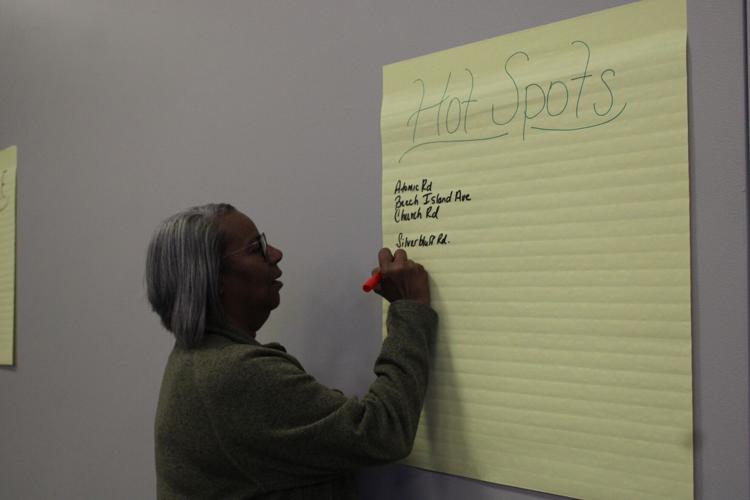 Hot Spots
Atomic Rd
Beech Island Ave
Church Rd
Silver bluff Rd.